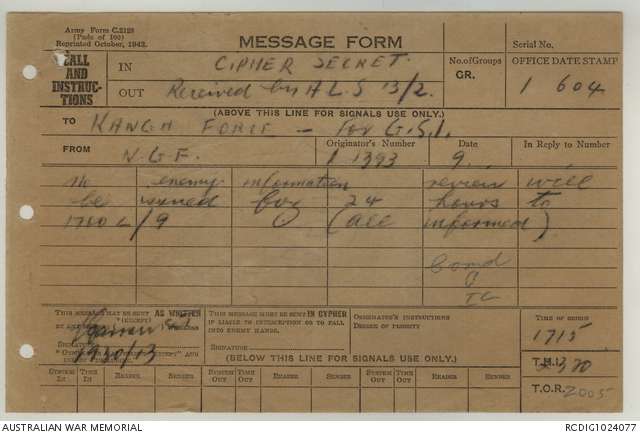 Army Form C.2128
(Pads of 100)
Reprinted October, 1942.
MESSAGE FORM
Serial No.
CALL
AND
INSTRUC-
TIONS
IN
CIPHER SECRET.
No. of Groups
GR.
OFFICE DATE STAMP
OUT
Received by A L S 13/2.
1 604
(ABOVE THIS LINE FOR SIGNALS USE ONLY.)
TO
KANGA FORCE — for G.S.I.
FROM
N.G.F.
Originator's Number
I 1393
Date
9
In Reply to Number
no enemy information review will
be issued for 24 hours to
1700 L/9 (all informed)
Comd
IC
THIS MESSAGE MAY BE SENT AS WRITTEN
(EXCEPT)
BY ANY
SIGNATURE
1920/13
THIS MESSAGE MUST BE SENT IN CYPHER
IF LIABLE TO INTERCEPTION OR TO FALL
INTO ENEMY HANDS.
SIGNATURE
ORIGINATOR'S INSTRUCTIONS
DEGREE OF PRIORITY
TIME OF ORIGIN
1715
(BELOW THIS LINE FOR SIGNALS USE ONLY.)
T.H.I.
T.O.R. 2005
SYSTEM IN
TIME IN
READER
SENDER
SYSTEM OUT
TIME OUT
READER
SENDER
SYSTEM OUT
TIME OUT
READER
SENDER
AUSTRALIAN WAR MEMORIAL
RCDIG1024077